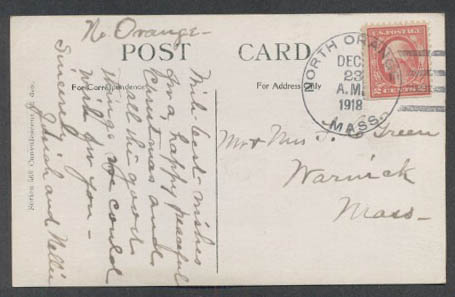 No. Orange-
POST CARD
For Correspondence
For Address Only
With best wishes
for a happy peaceful
Christmas and
all the good
things we could
wish for you -
Sincerely
and Nellie
NORTH ORANGE
DEC
23
A.M.
1918
MASS.
U.S. POSTAGE
2 CENTS 2
Mr + Mrs J. Green
Warwick
Mass-